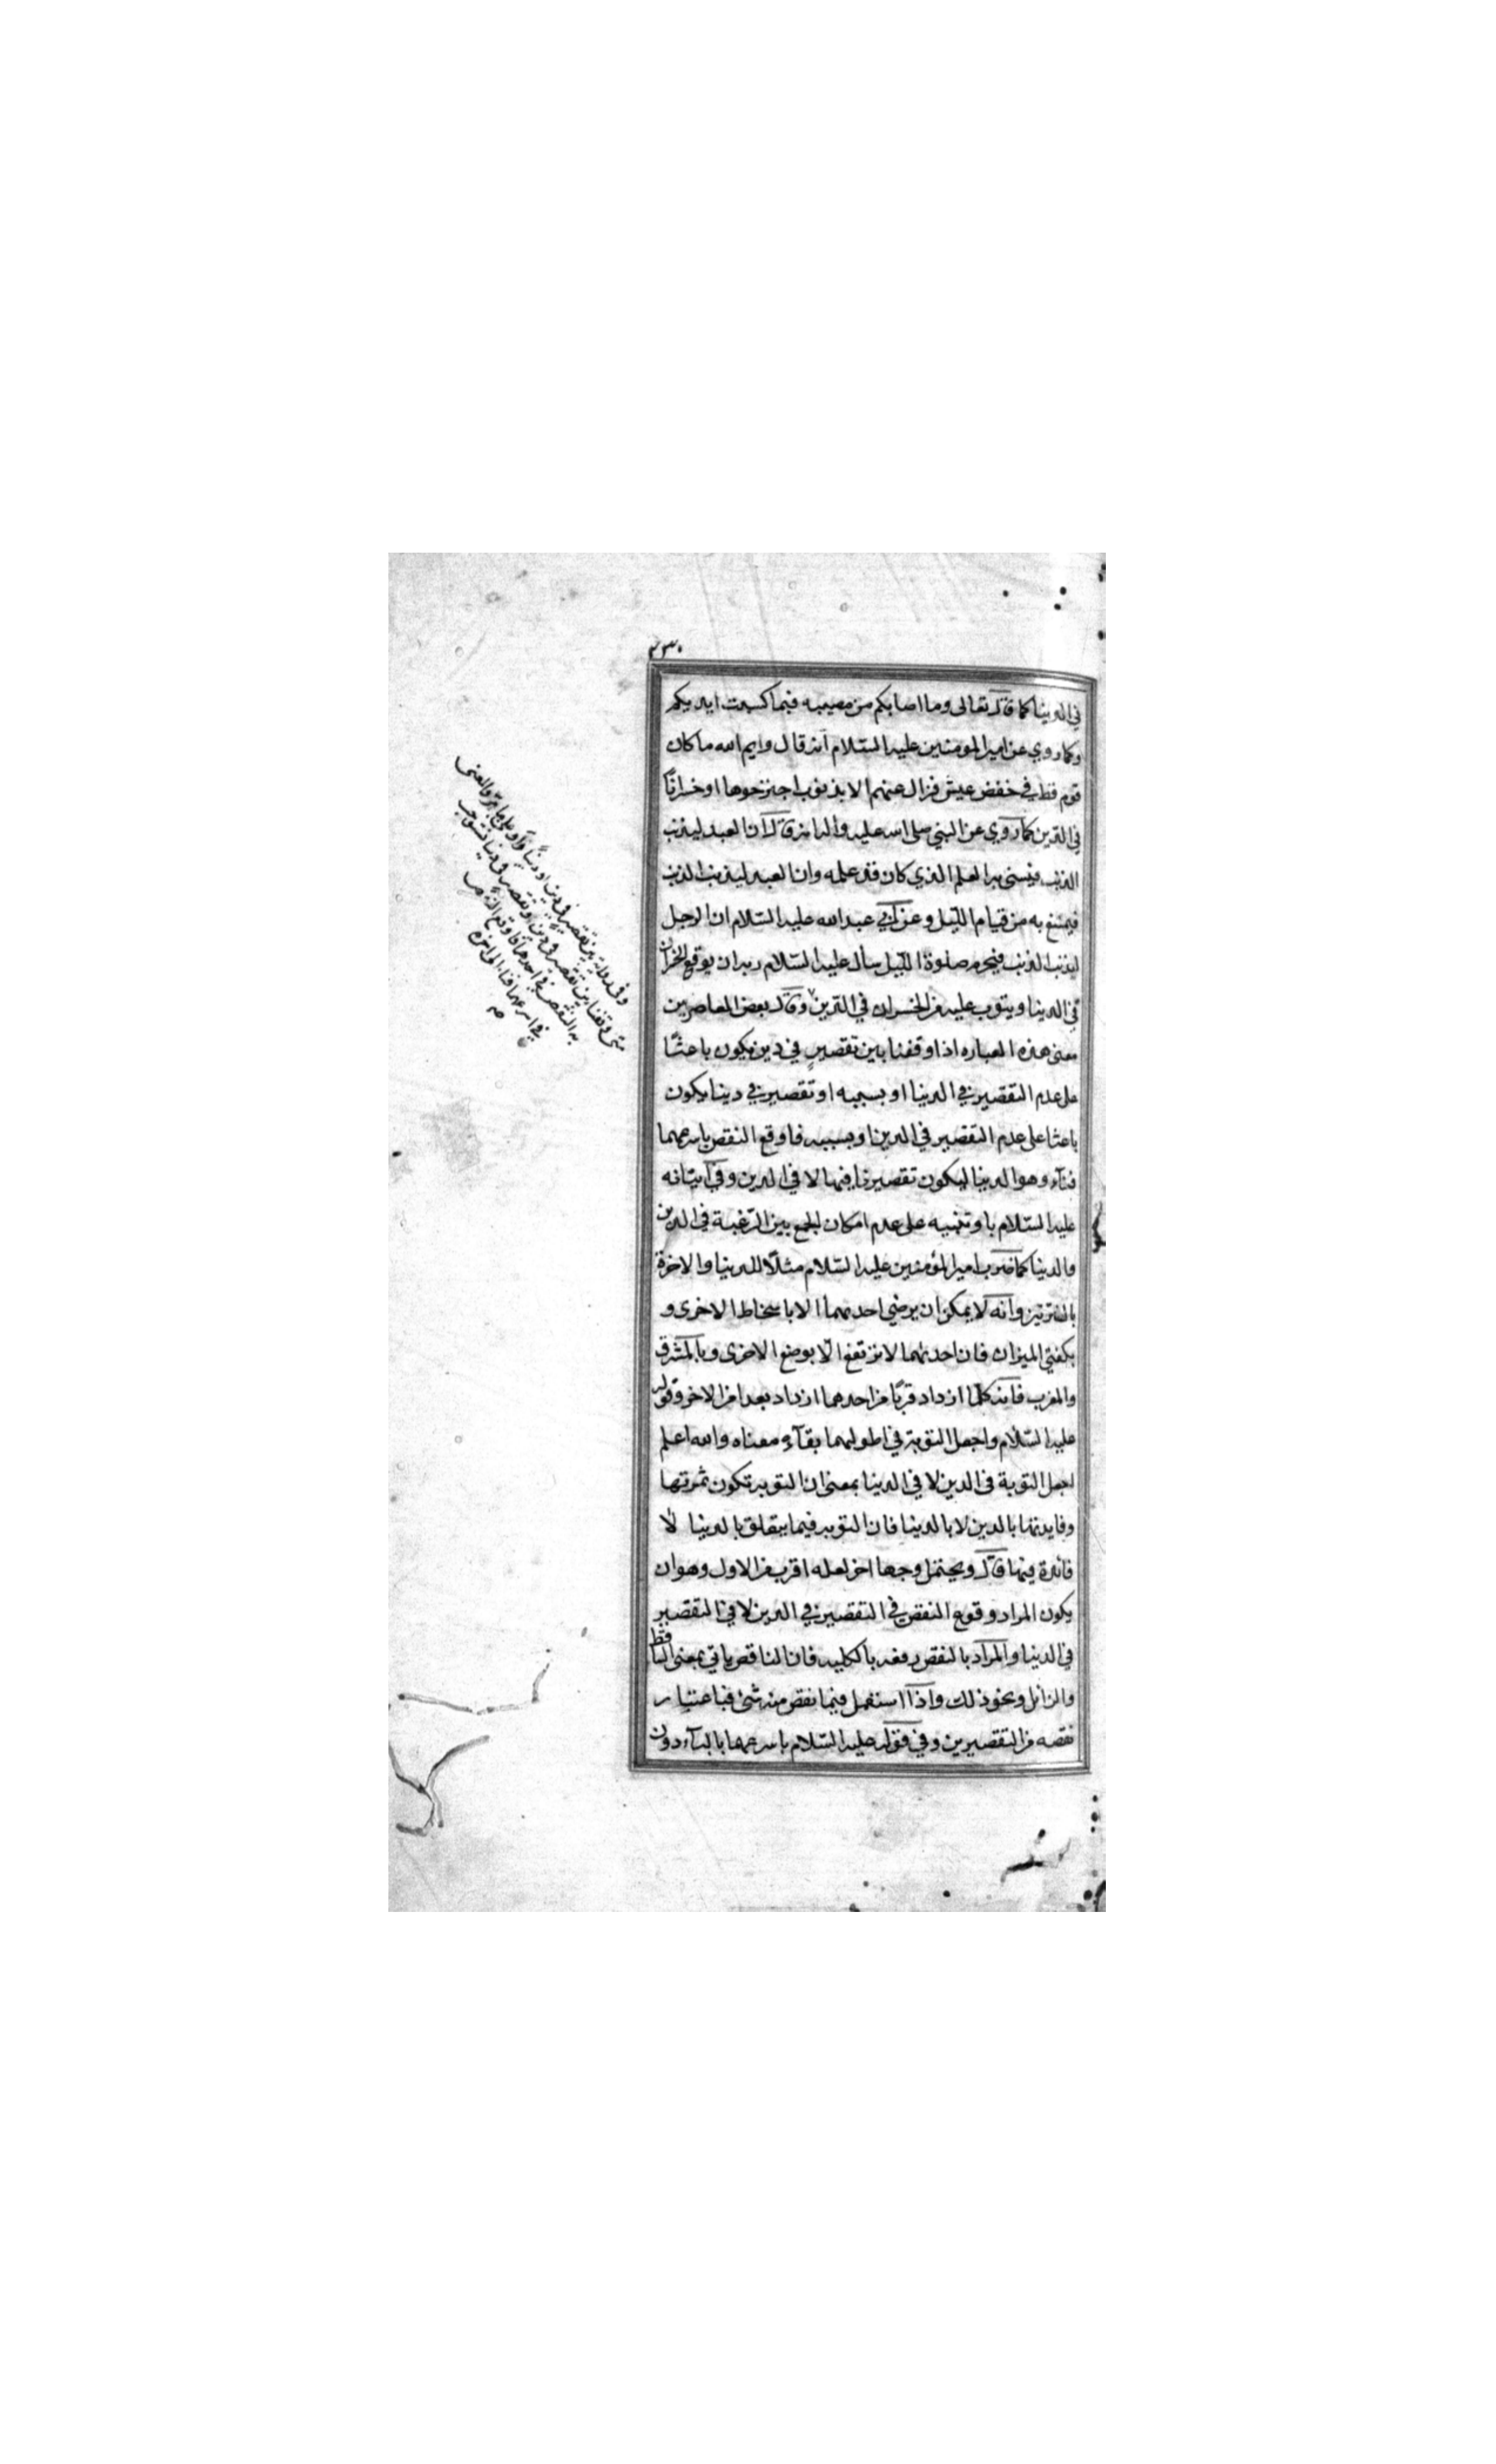 ٢٣٠
في الدينا كما قال تعالى وما اصابكم من مصيبه فبما كسبت ايديكم
وكما روي عن امير المومنين عليه السّلام انه قال وايم الله ما كان
قوم قط في خفض عيش فزال عنهم الا بذنوب اجترحوها او خسرانًا
في الدّين كما روي عن النبي صلى الله عليه واله انه قال ان العبد ليذنب
الذنب فينسى به العلم الذي كان قد علمه وان العبد ليذنب الذنب
فيمتنع به من قيام اللّيل وعن ابي عبد الله عليه السّلام ان الرجل
ليذنب الذنب فيحرم صلوة اللّيل سأل عليه السّلام ربه ان يوقع الخسران
في الدينا ويتوب عليه من الخسران في الدّين وقال بعض المعاصرين
معنى هذه العباره اذا وقفنا بين تقصير في دين يكون باعثًا
على عدم التقصير في الدينا او بسببه او تقصير في دينا يكون
باعثا على عدم التقصير في الدين او بسببه فاوقع النقص باسرعهما
فناء وهو الدينا ليكون تقصيرنا فيها لا في الدين وفي اتيانه
عليه السّلام باو تنبيه على عدم امكان الجمع بين الرّغبة في الدين
والدينا كما ضرب امير المؤمنين عليه السّلام مثلًا للدينا والاخرة
بالضرتين وانه لا يمكن ان يرضي احدىهما الا باسخاط الاخرى و
بكفتي الميزان فان احدىهما لا ترتفع الّا بوضع الاخرى وبالمشرق
والمغرب فانه كلّما ازداد قربًا من احدهما ازداد بعدا من الاخر وقوله
عليه السّلام واجعل التوبة في اطولهما بقآء معناه والله اعلم
اجعل التوبة في الدين لا في الدينا بمعنى ان التوبه تكون ثمرتها
وفايدتها بالدين لا بالدينا فان التوبه فيما يتعلق بالدينا لا
فائدة فيها قال ويحتمل وجها اخر لعله اقرب من الاول وهو ان
يكون المراد وقوع النقص في التقصير في الدين لا في التقصير
في الدينا والمراد بالنقص رفعه بالكليه فان الناقص ياتي بمعنى الساقط
والزائل ونحو ذلك واذا استعمل فيما نقص منه شئ فباعتبار
نقصه من التقصيرين وفي قوله عليه السّلام باسرعهما بالبآء دون
وفي رواية بين تقصير في دين او دينا
متى وقفنا بين تقصير في دين او تقصير في دينا نستوجب
به النقص في احدهما فاوقع
في اسرعهما فناء